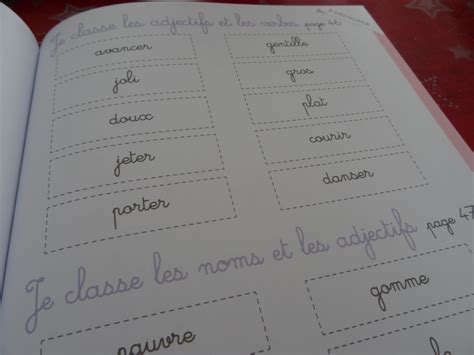 à découvrir
Je classe les adjectifs et les verbes page 46
avancer
gentille
joli
gros
doux
plat
jeter
courir
porter
danser
Je classe les noms et les adjectifs page 47
pauvre
gomme